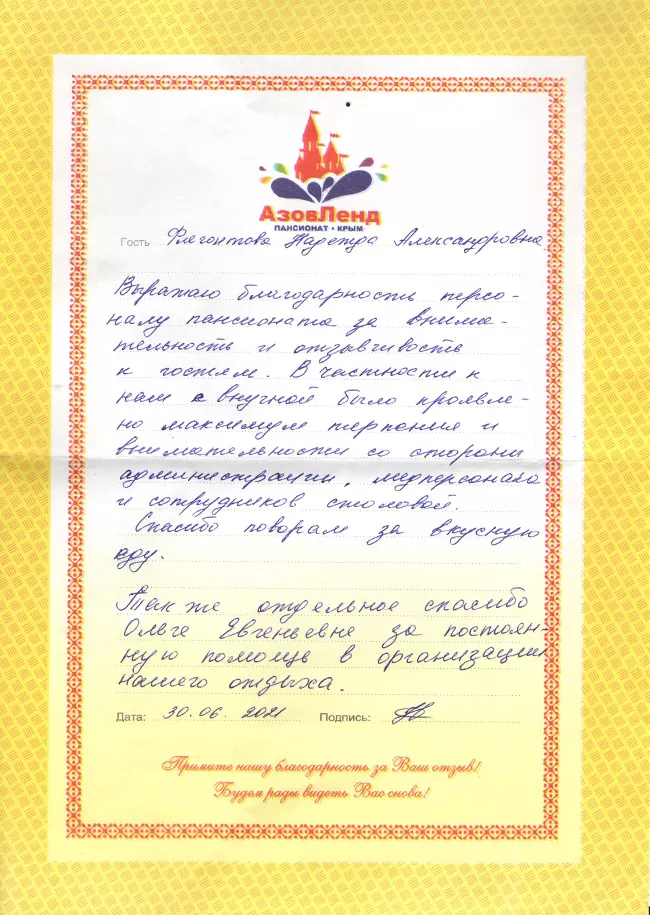 АзовЛенд
ПАНСИОНАТ • КРЫМ
Гость Флегонтова Надежда Александровна
Выражаю благодарность персо-
налу пансионата за внима-
тельность и отзывчивость
к гостям. В частности к
нам с внучкой было проявле-
но максимум терпения и
внимательности со стороны
администрации, медперсонала
и сотрудников столовой.
Спасибо поварам за вкусную
еду.
Также отдельное спасибо
Ольге Евгеньевне за постоян-
ную помощь в организации
нашего отдыха.
Дата: 30.06.2021 Подпись:
Примите нашу благодарность за Ваш отзыв!
Будем рады видеть Вас снова!